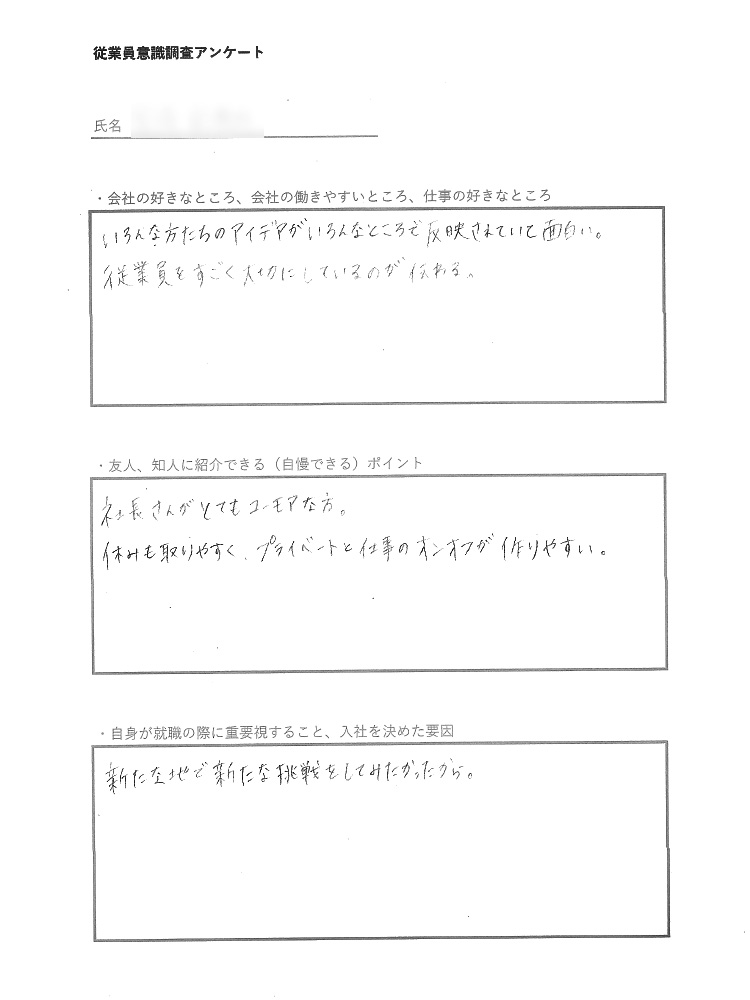 従業員意識調査アンケート
氏名
・会社の好きなところ、会社の働きやすいところ、仕事の好きなところ
いろんな方たちのアイデアがいろんなところで反映されていて面白い。
従業員をすごく大切にしているのが伝わる。
・友人、知人に紹介できる（自慢できる）ポイント
社長さんがとてもユーモアな方。
休みも取りやすく、プライベートと仕事のオンオフが作りやすい。
・自身が就職の際に重要視すること、入社を決めた要因
新たな地で新たな挑戦をしてみたかったから。